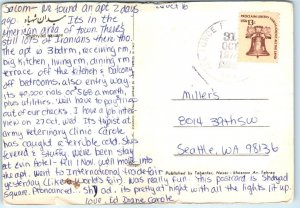 Salom- We found an apt 2 days
ago میدان شهیاد Its in the
american area of town. There's
still lots of Iranians there tho.
The apt is 3bdrm, receiving rm,
big kitchen, living rm, dining rm
terrace off the kitchen & balcony
off bedrooms, also entry way.
Its 40,000 rials or $568 a month,
plus utilities. Will have to pay it
out of our checks. I have a job inter-
view on 27 Oct, wed. Its typist at
army veterinary clinic. Carole
has caught a terrible cold. She's
fevered & stuffy. Were been stay
at evin hotel till 1 Nov. will move into
the apt. Went to International trade fair
yesterday (like worlds fair) was really fun. This postcard is Shahyad
Square. Pronounced... Sh ad. its pretty at night with all the lights lit up.
love, Ed Diane Carole
Published by Tajerian
31
OCT
1977
USA
13c
Miller's
8014 39th SW
Seattle, WA 98136